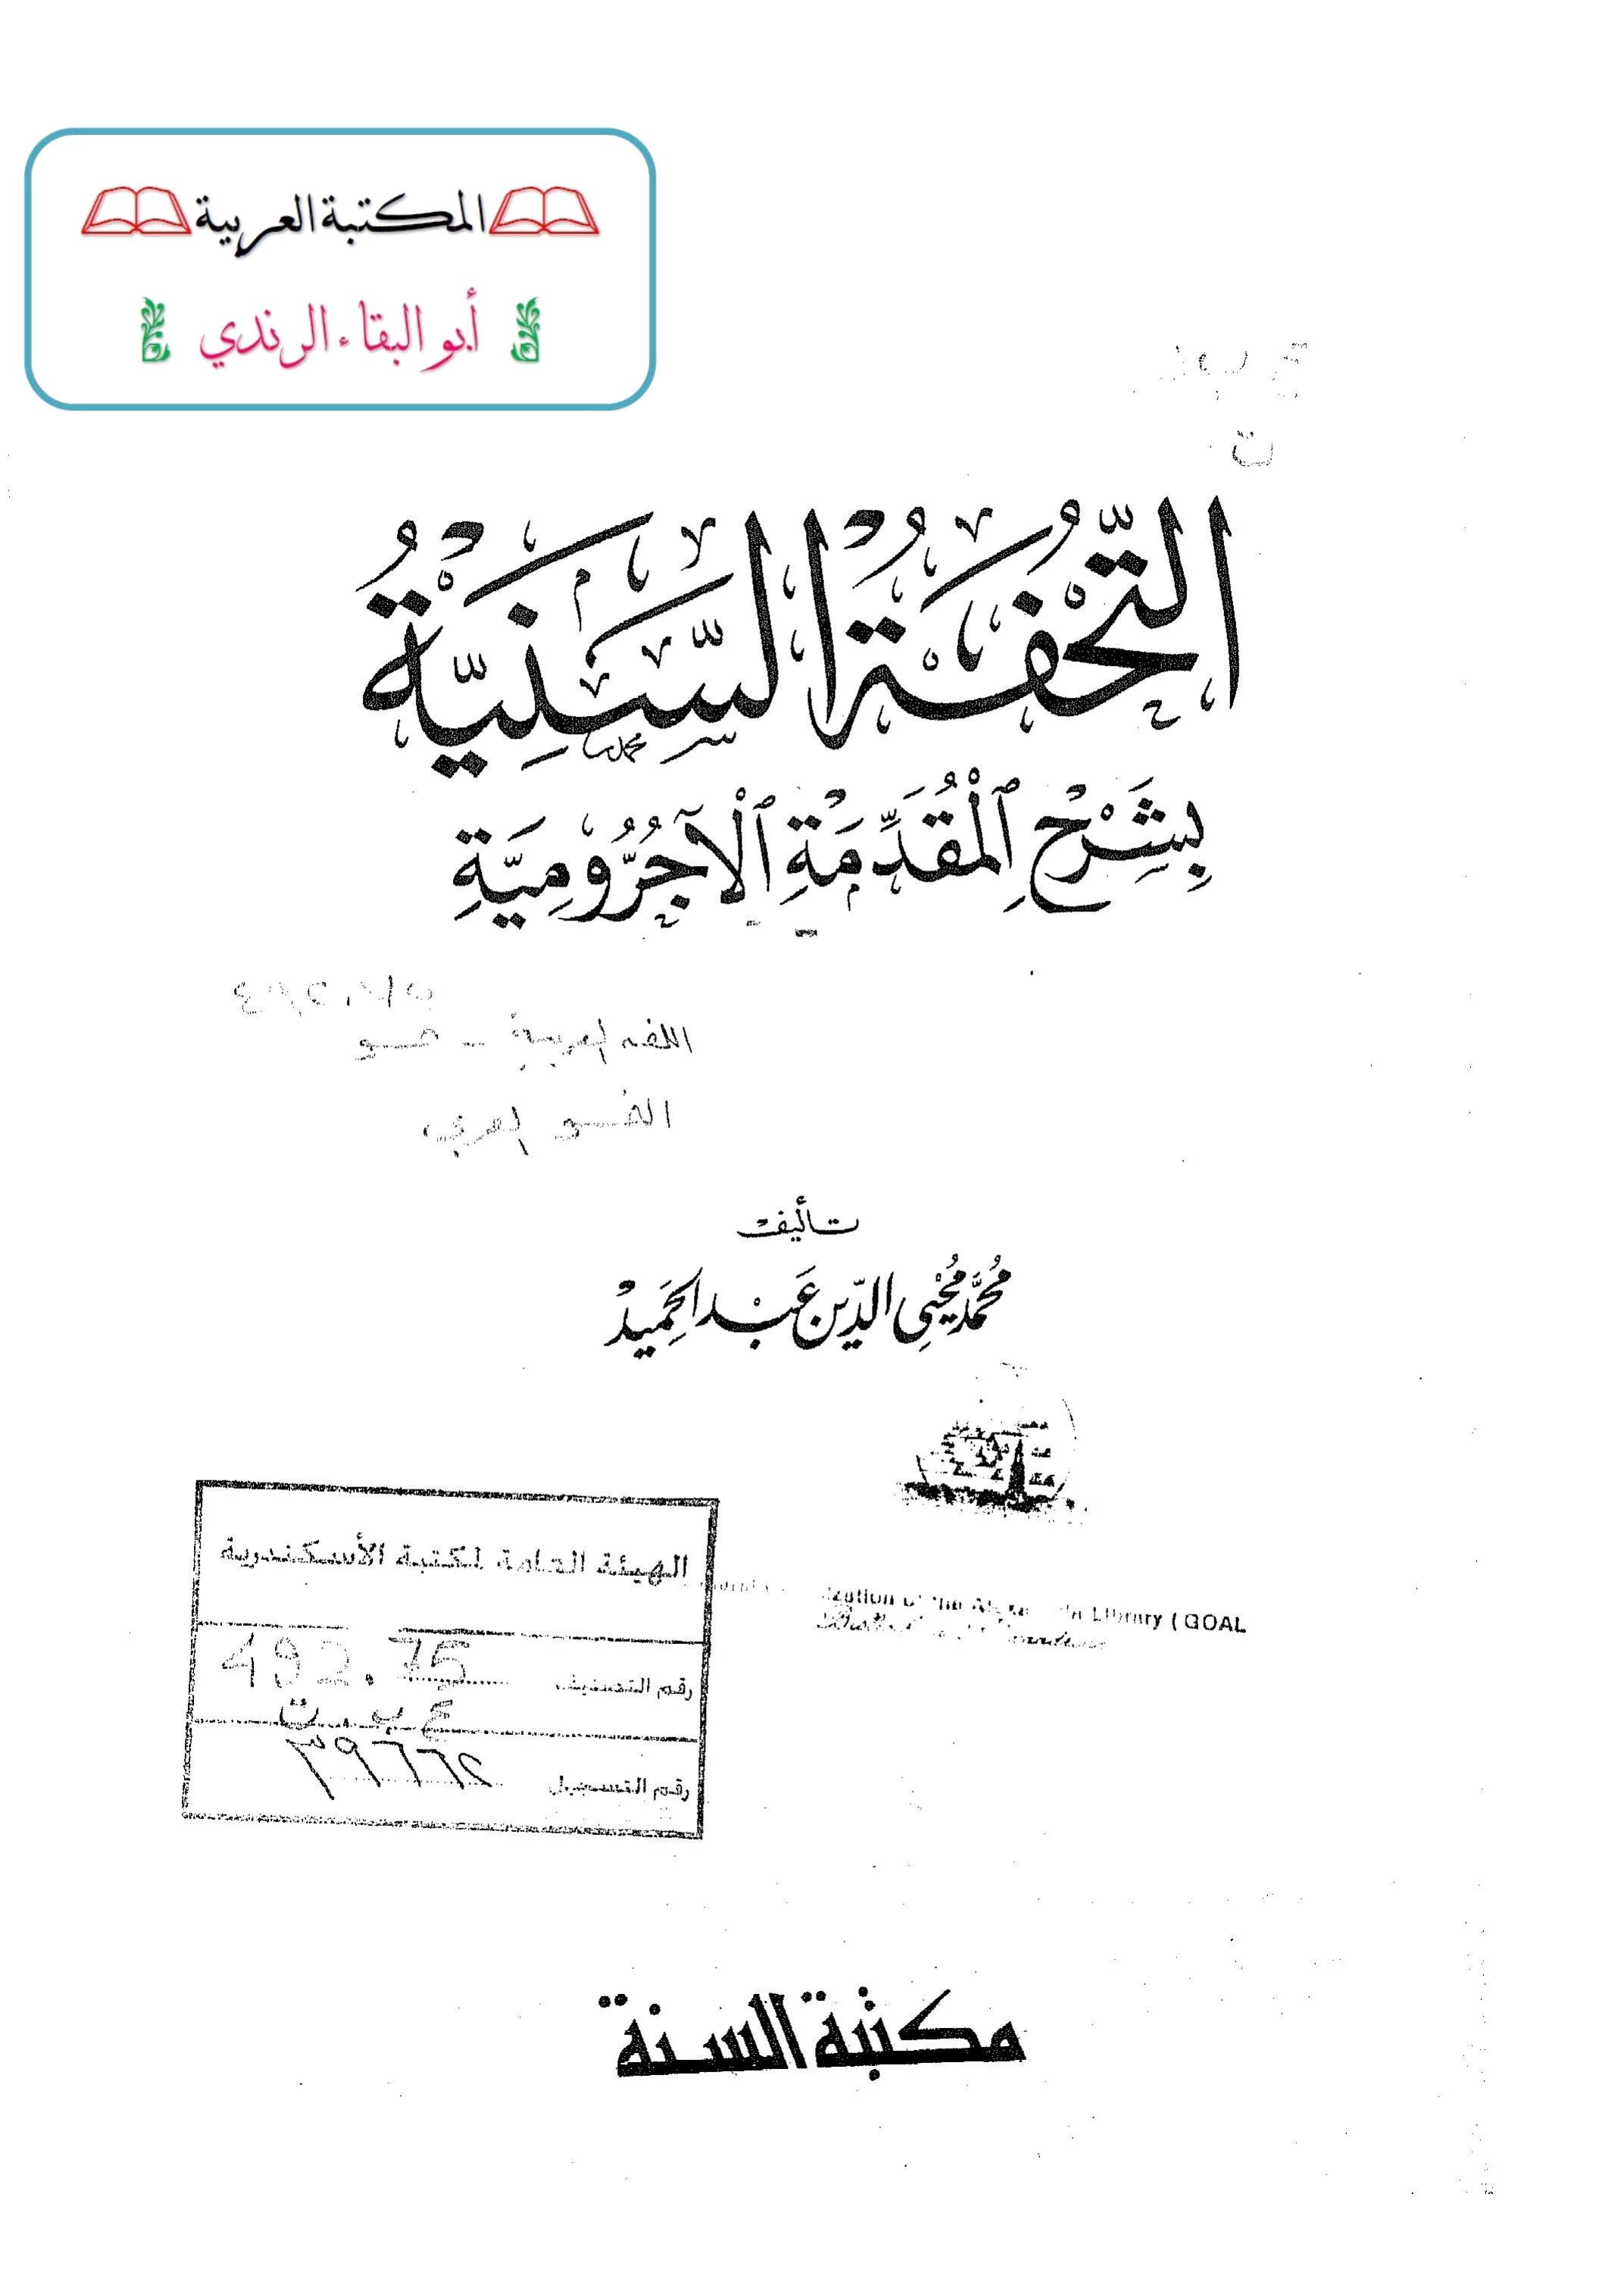 المكتبة العربية
أبو البقاء الرندي
ت
التُّحْفَةُ السَّنِيَّةُ
بِشَرْحِ ٱلْمُقَدِّمَةِ ٱلْآجُرُّومِيَّةِ
اللغة العربية - نحو
النحو العربي
تأليف
مُحَمَّد مُحْيِي الدِّين عَبْد الحَمِيدْ
الهيئة العامة لمكتبة الأسكندرية
of the Library ( GOAL
رقم التصنيف 492.75
ع ب . ت
رقم التسجيل ٣٩٦٦٢
مكتبة السنة